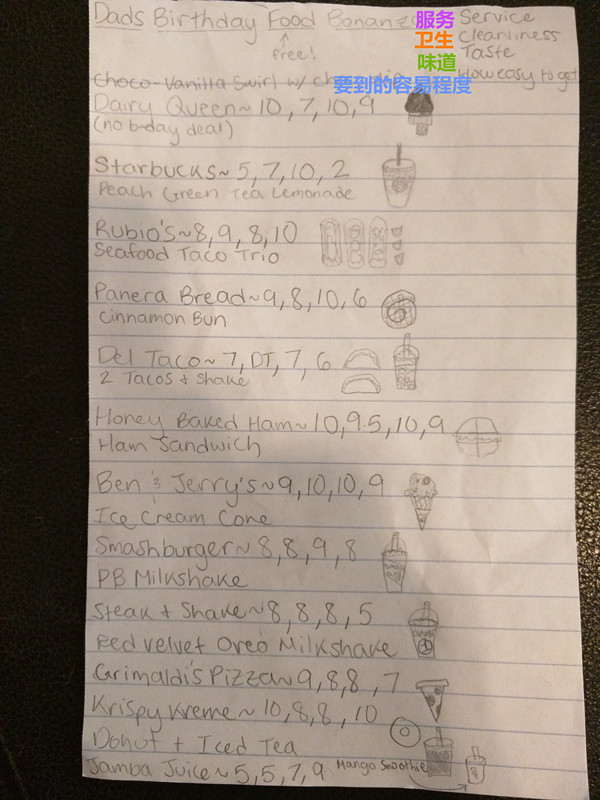 Dads Birthday Food Bonanza
服务 Service
卫生 Cleanliness
味道 Taste
要到的容易程度 How easy to get
free!
Choco-Vanilla Swirl w/
Dairy Queen~10,7,10,9
(no b-day deal)
Starbucks~5,7,10,2
Peach Green Tea Lemonade
Rubio's~8,9,8,10
Seafood Taco Trio
Panera Bread~9,8,10,6
Cinnamon Bun
Del Taco~7,DT,7,6
2 Tacos + Shake
Honey Baked Ham~10,9.5,10,9
Ham Sandwich
Ben & Jerry's~9,10,10,9
Ice Cream Cone
Smashburger~8,8,9,8
PB Milkshake
Steak + Shake~8,8,8,5
Red Velvet Oreo Milkshake
Grimaldi's Pizza~9,8,8,7
Krispy Kreme~10,8,8,10
Donut + Iced Tea
Jamba Juice~5,5,7,9 Mango Smoothie